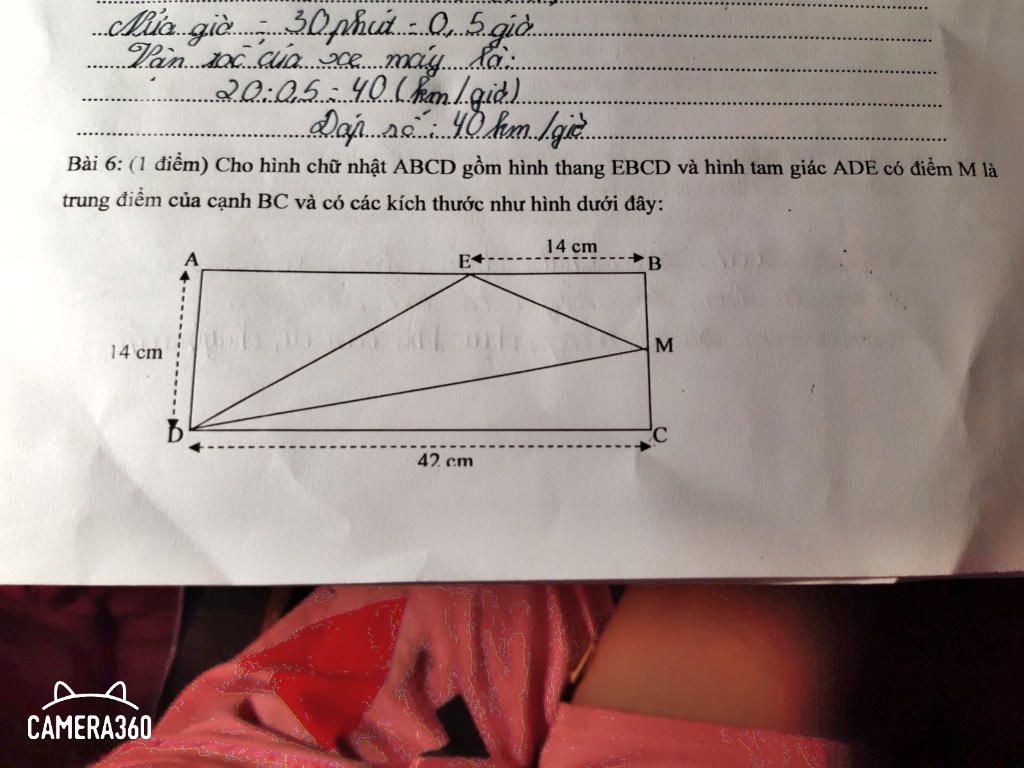 Nửa giờ = 30 phút = 0,5 giờ
Vận tốc của xe máy là:
20:0,5 = 40 (km/giờ)
Đáp số: 40 km/giờ
Bài 6: (1 điểm) Cho hình chữ nhật ABCD gồm hình thang EBCD và hình tam giác ADE có điểm M là
trung điểm của cạnh BC và có các kích thước như hình dưới đây:
14 cm
A E B
14 cm M
D C
42 cm
CAMERA360